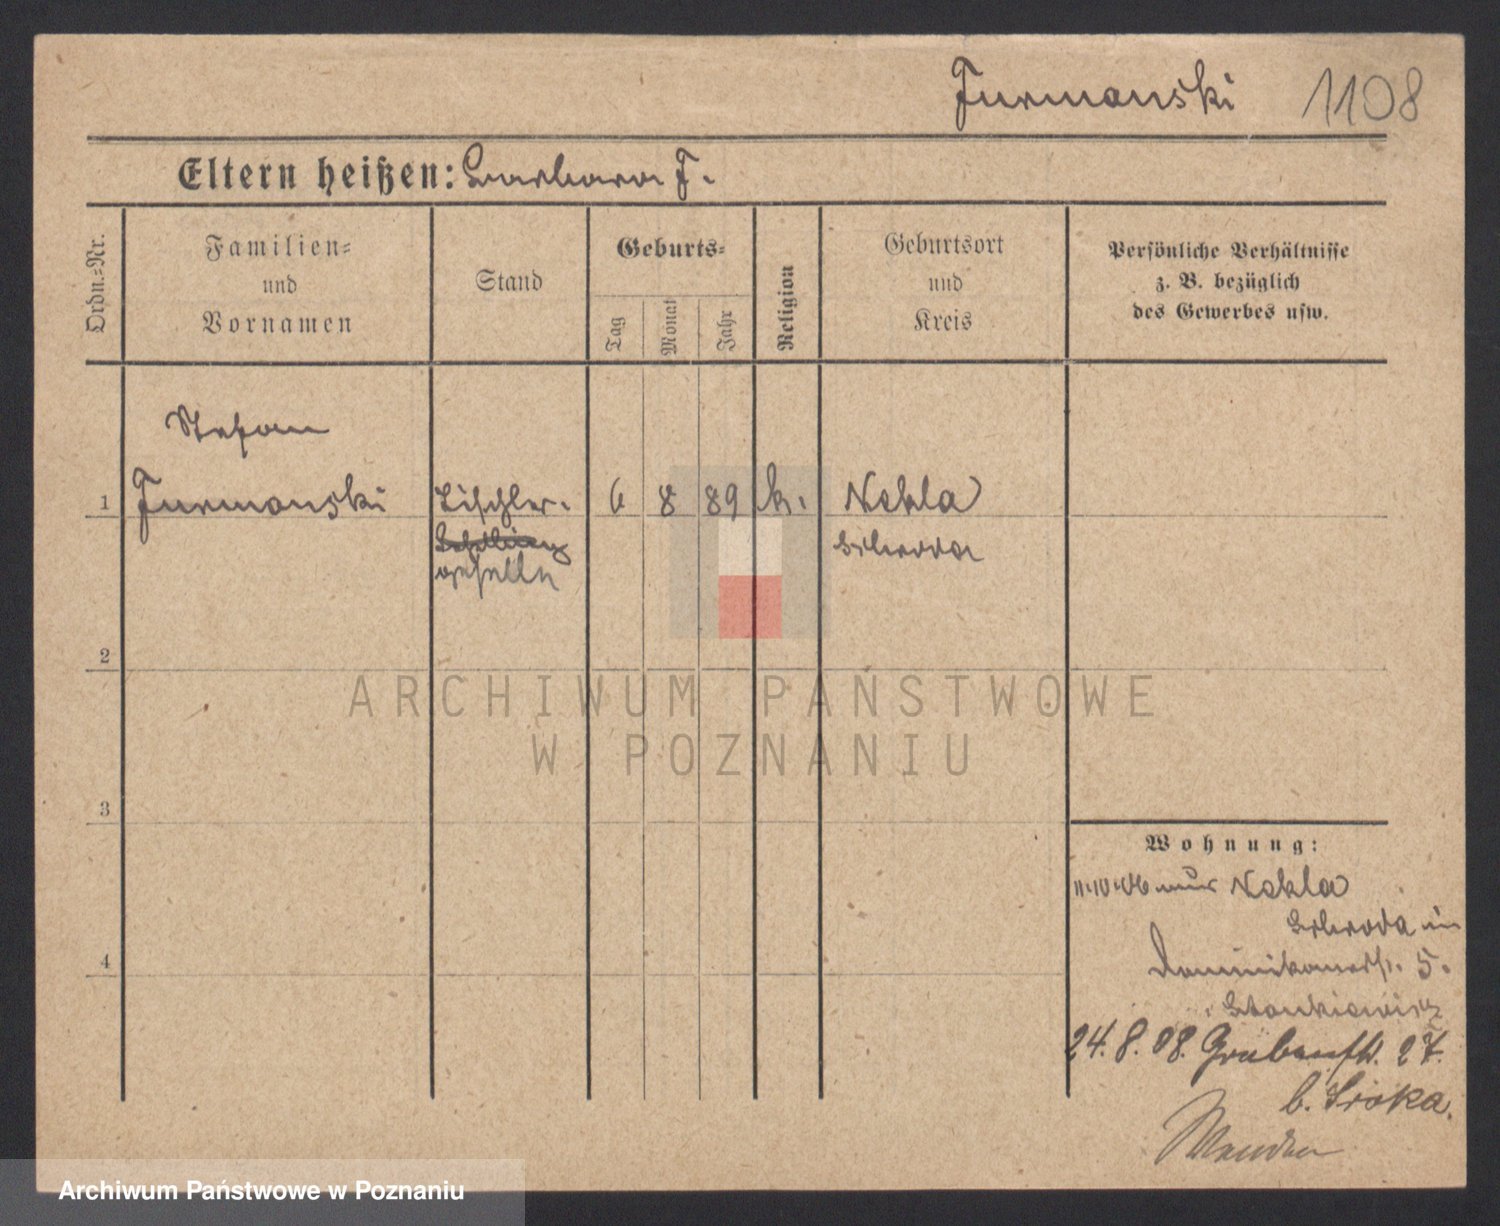 Furmanski 1108
Eltern heißen: Barbara F.
Ordn.=Nr.
Familien=
und
Vornamen
Stand
Geburts=
Tag
Monat
Jahr
Religion
Geburtsort
und
Kreis
Persönliche Verhältnisse
z. B. bezüglich
des Gewerbes usw.
Stefan
1 Furmanski Tischler- 6 8 89 k. Nekla
Schroda
geselle
2
ARCHIWUM PAŃSTWOWE
W POZNANIU
3
Wohnung:
11.10.06 aus Nekla
Schroda in
Dominikanerstr. 5.
Stankiewicz
24. 8. 08. Grabenstr. 27.
b. Sroka.
4
Archiwum Państwowe w Poznaniu